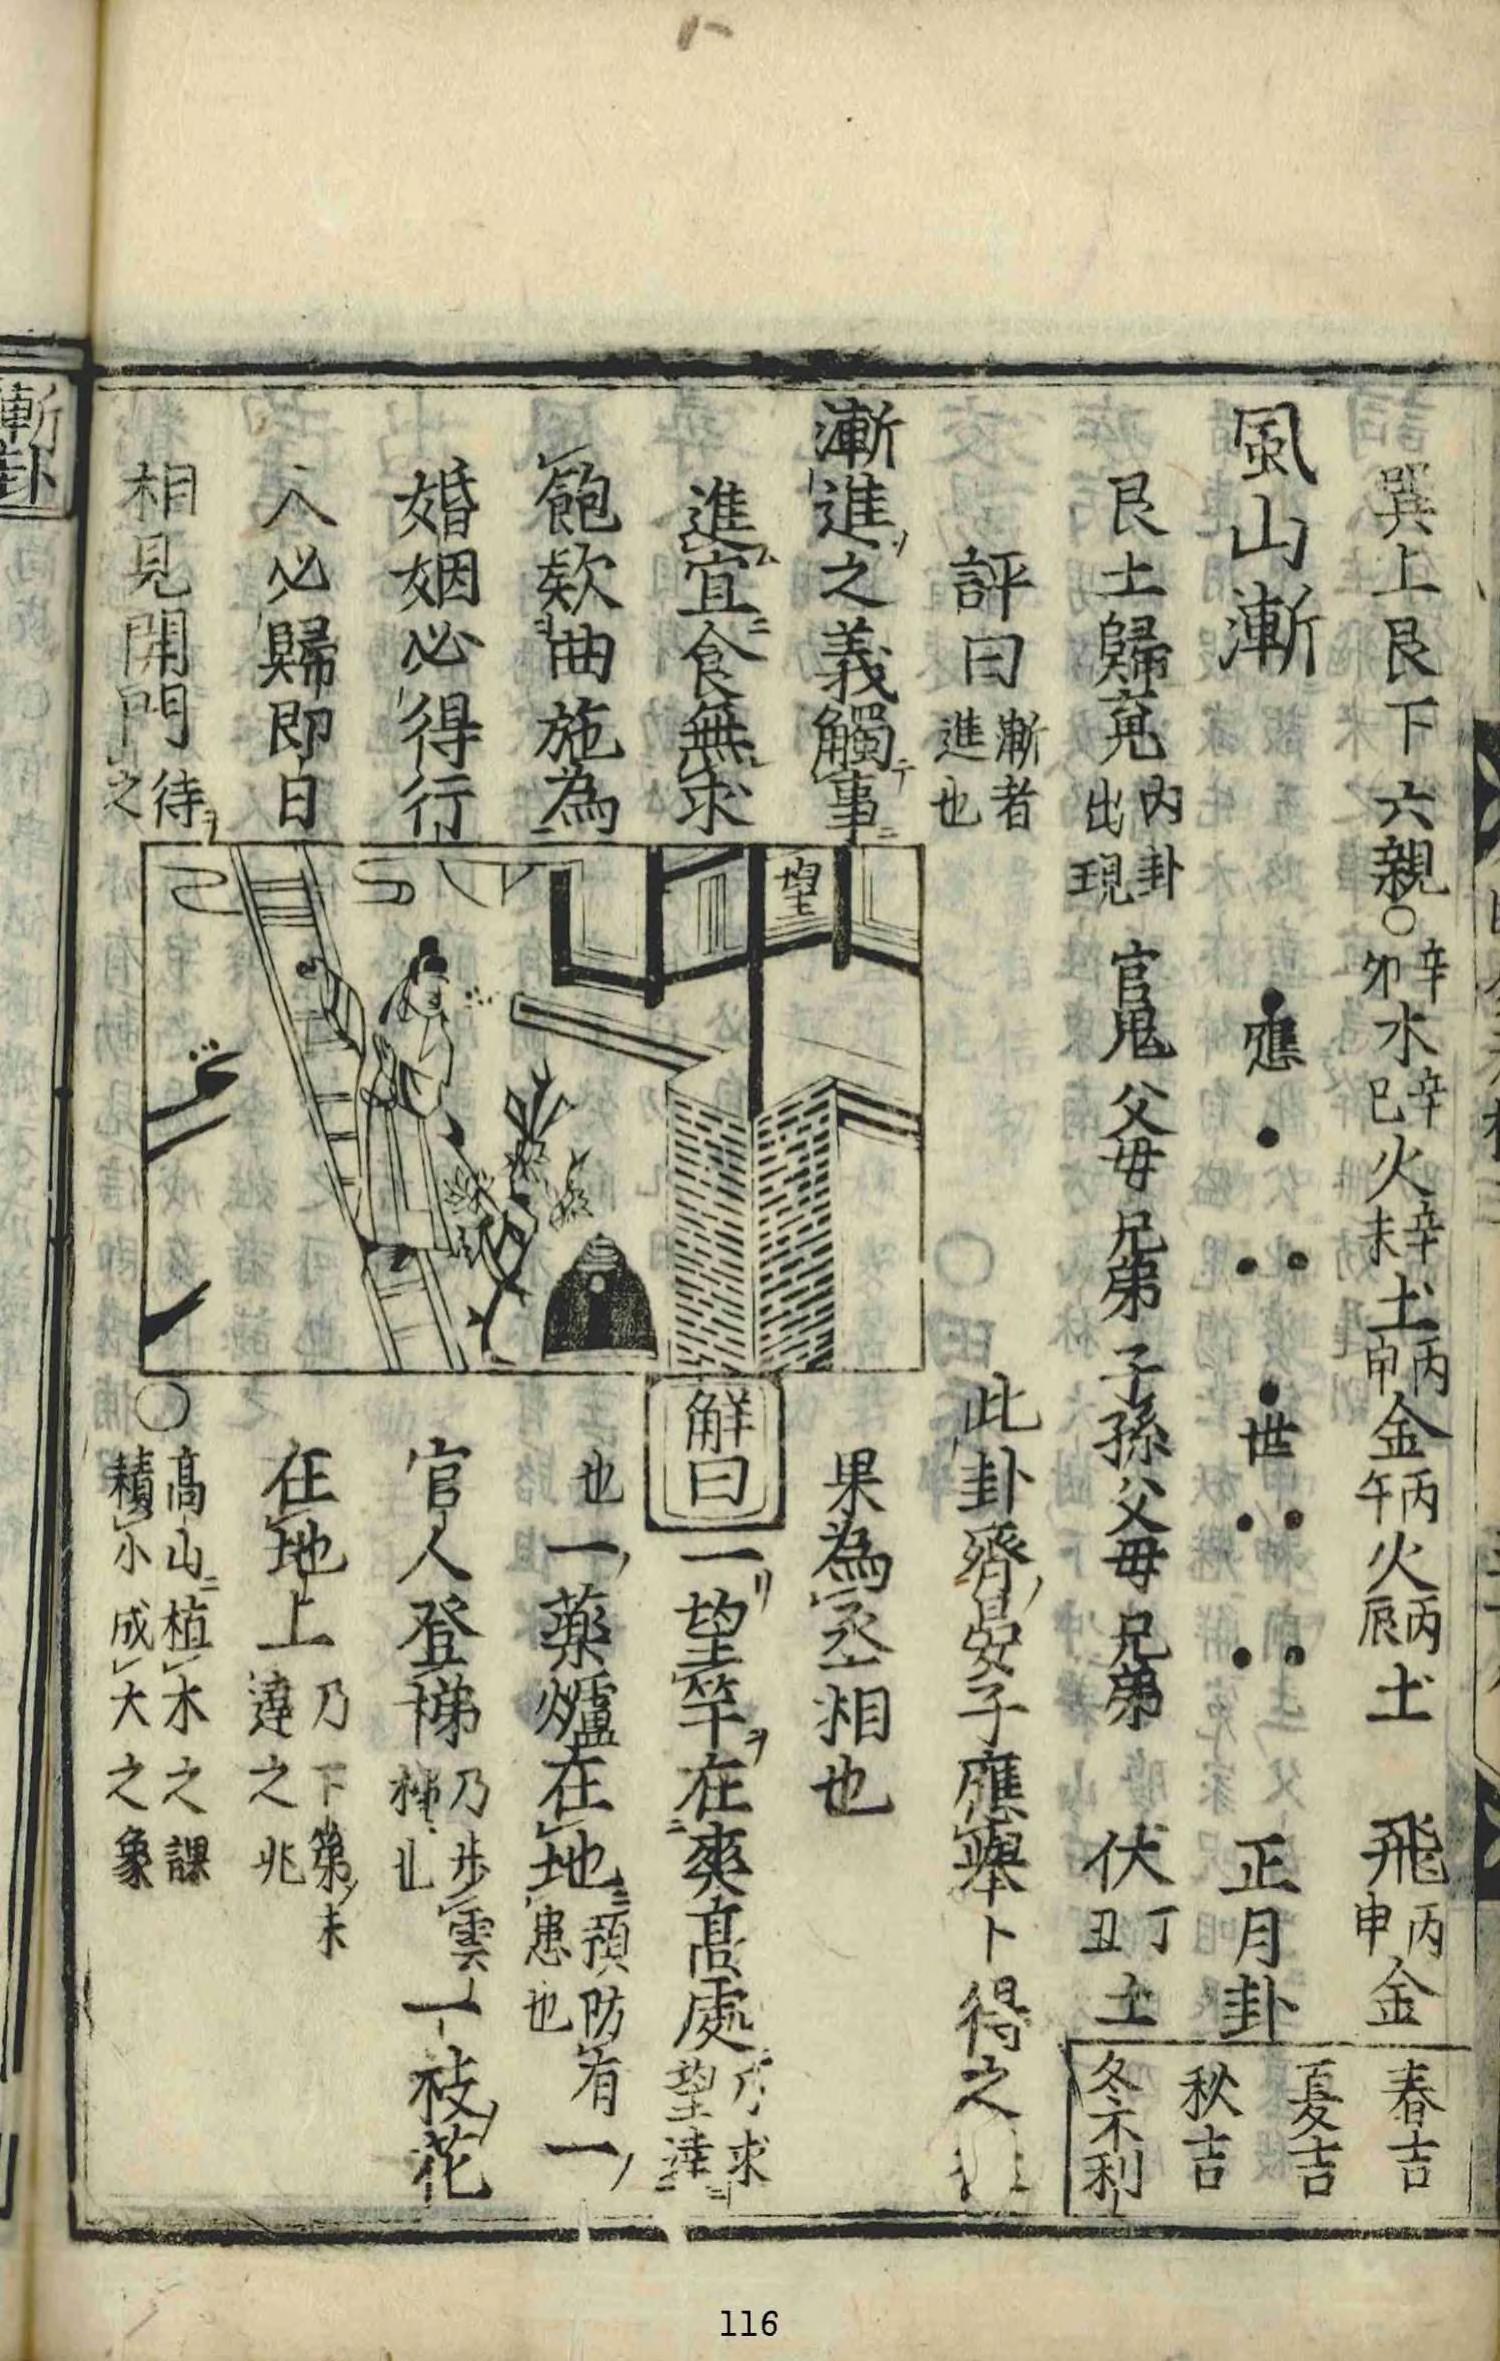 巽上艮下 六親〇辛卯水辛巳火辛未土丙申金丙午火丙辰土 飛丙申金
風山漸 應 世 正月卦
艮土歸䰟內卦出現 官鬼 父母 兄弟 子孫 父母 兄弟 伏丁丑土
春吉
夏吉
秋吉
冬不利
評曰漸者進也
此卦齊晏子應舉卜得之
漸進之義觸事
果為丞相也
進宜食無求
飽欵曲施為
婚姻必得行
人必歸即日
相見開門待之
望
解曰
一望竿在爽高處乃求望達
也一藥爐在地預防有患也一
官人登梯乃步雲梯也一枝花
在地上乃下第未達之兆
〇高山植木之課積小成大之象
漸卦
116